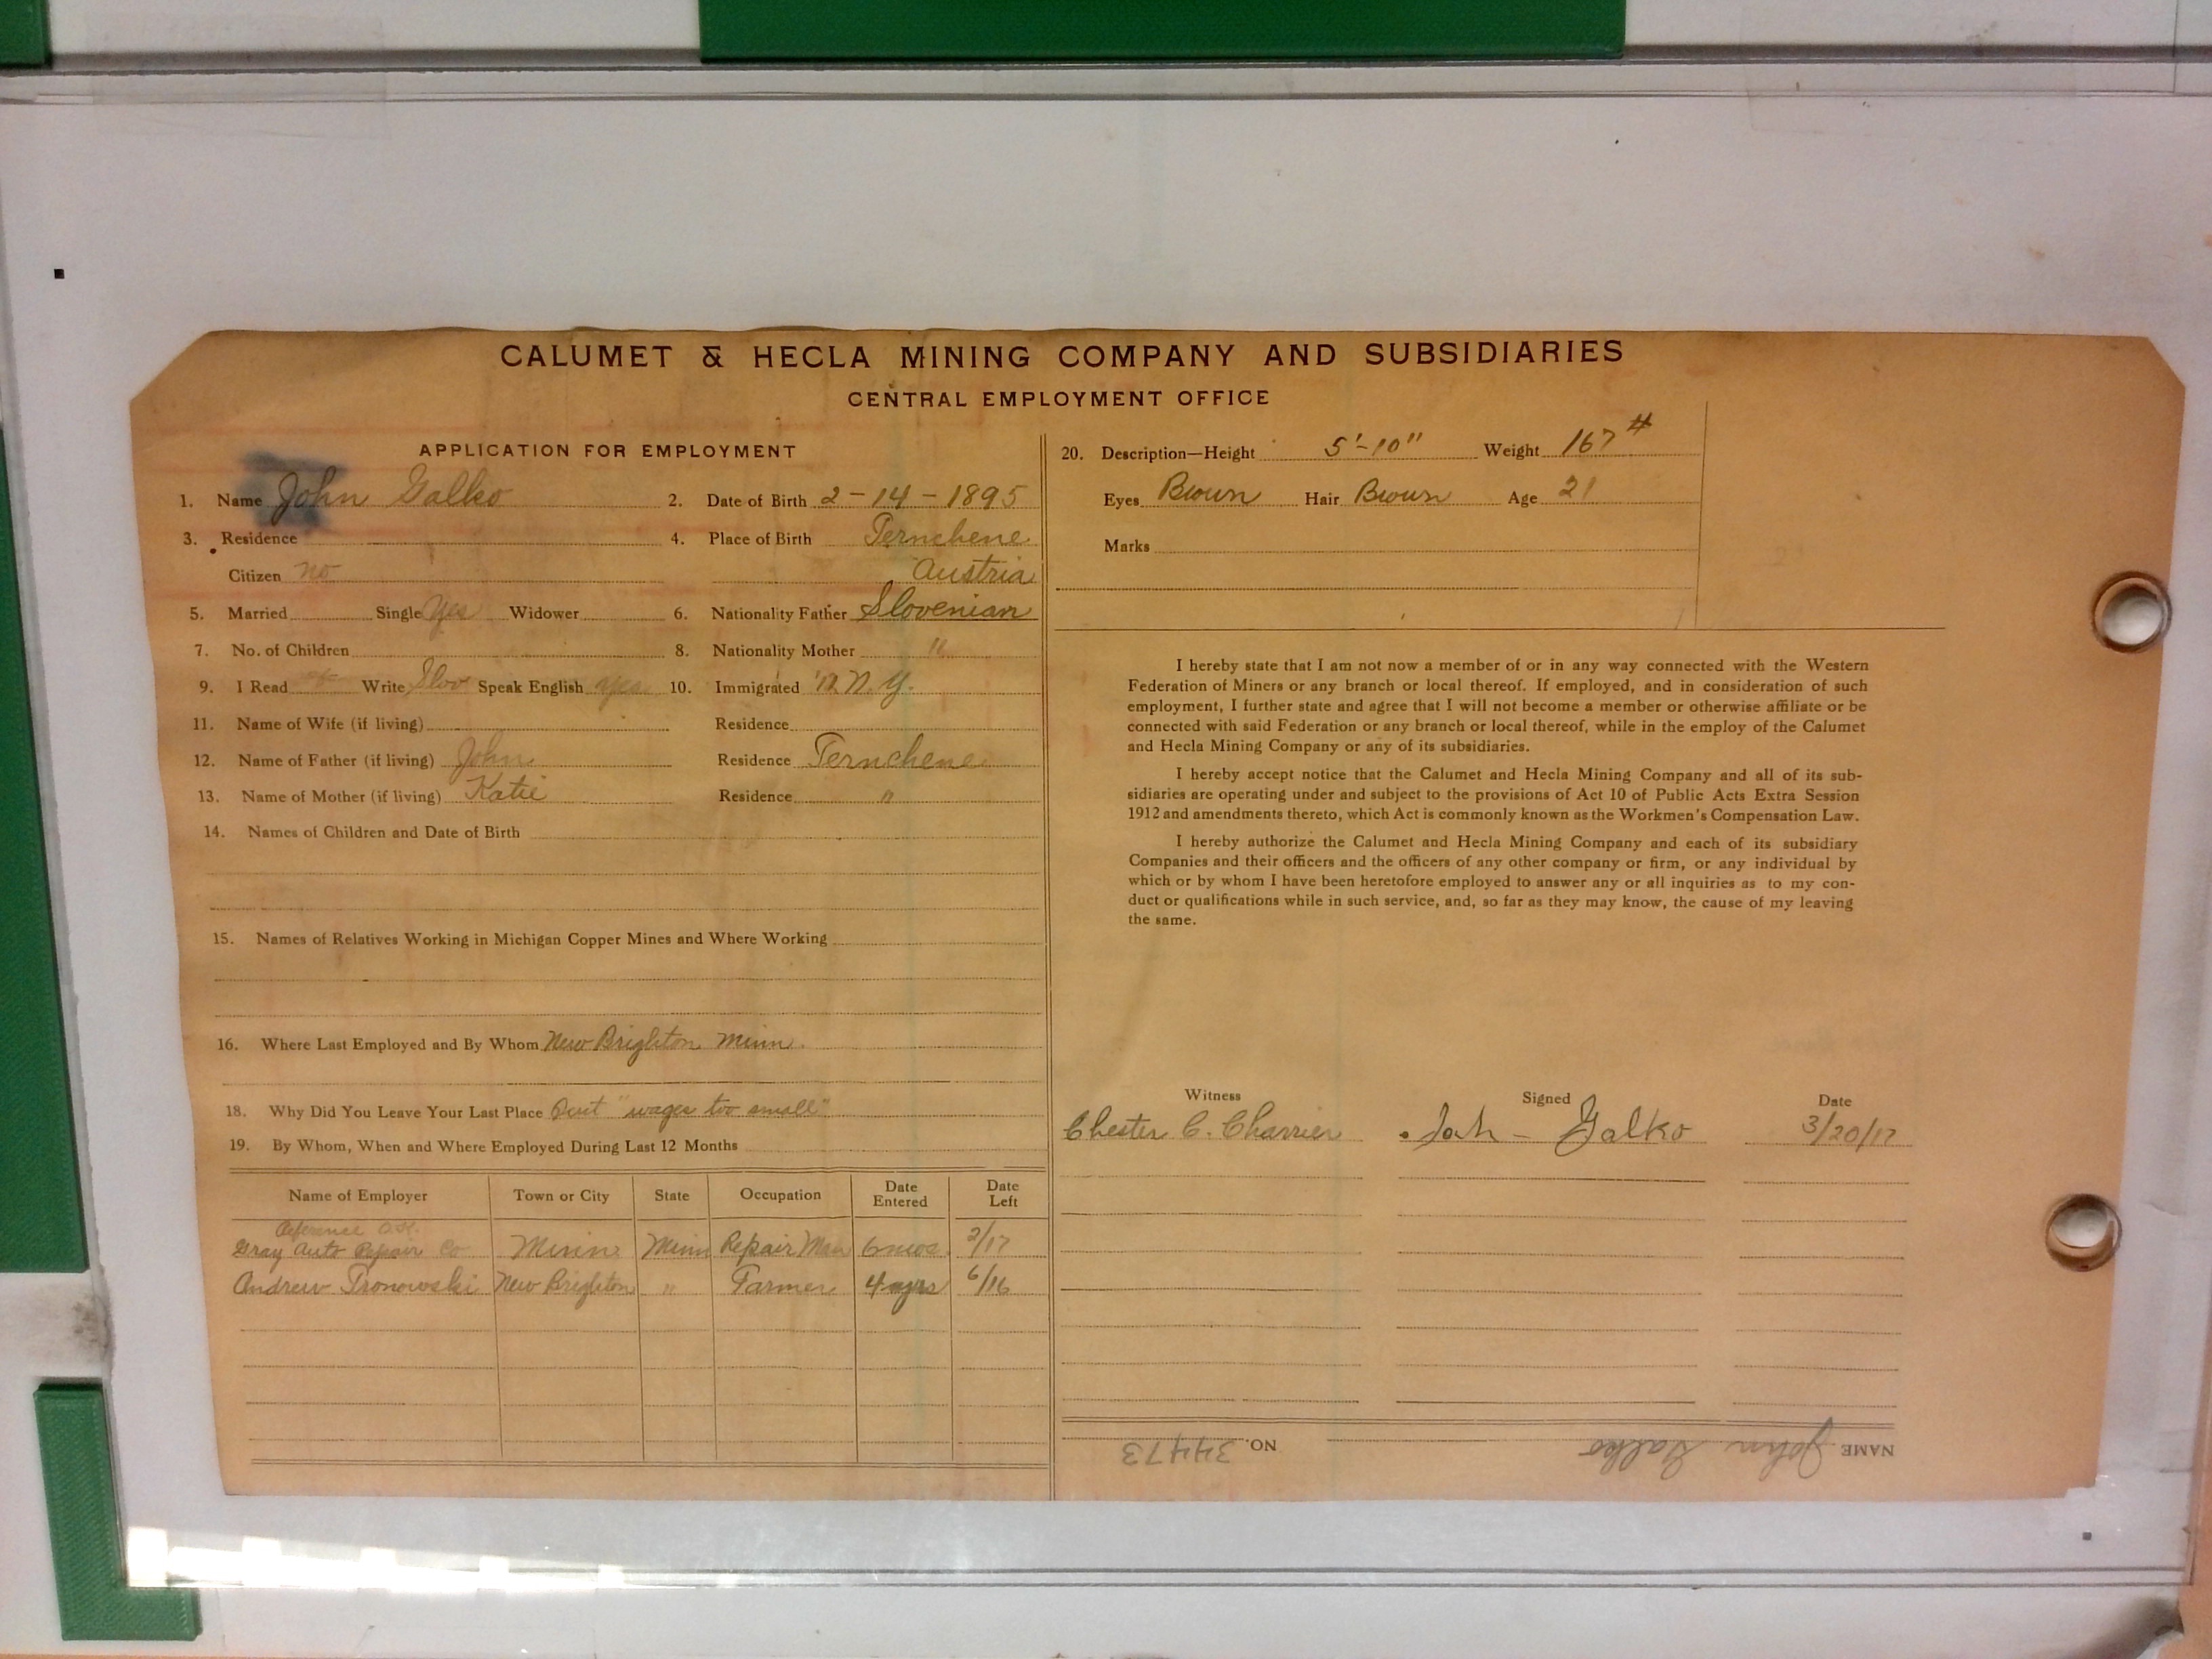 CALUMET & HECLA MINING COMPANY AND SUBSIDIARIES
CENTRAL EMPLOYMENT OFFICE
APPLICATION FOR EMPLOYMENT
1. Name John Galko 2. Date of Birth 2-14-1895
3. Residence 4. Place of Birth Ternchene
Citizen no Austria
5. Married Single Yes Widower 6. Nationality Father Slovenian
7. No. of Children 8. Nationality Mother "
9. I Read Write Slov Speak English yes 10. Immigrated N.Y.
11. Name of Wife (if living) Residence
12. Name of Father (if living) John Residence Ternchene
13. Name of Mother (if living) Katie Residence "
14. Names of Children and Date of Birth
15. Names of Relatives Working in Michigan Copper Mines and Where Working
16. Where Last Employed and By Whom New Brighton Minn.
18. Why Did You Leave Your Last Place Quit "wages too small"
19. By Whom, When and Where Employed During Last 12 Months
Name of Employer Town or City State Occupation Date Entered Date Left
Reference O.K.
Gray Auto Repair Co Minn Minn Repair Man 6 mos. 2/17
Andrew Tronowski New Brighton " Farmer 4 yrs 6/16
20. Description—Height 5'-10" Weight 167#
Eyes Brown Hair Brown Age 21
Marks
I hereby state that I am not now a member of or in any way connected with the Western
Federation of Miners or any branch or local thereof. If employed, and in consideration of such
employment, I further state and agree that I will not become a member or otherwise affiliate or be
connected with said Federation or any branch or local thereof, while in the employ of the Calumet
and Hecla Mining Company or any of its subsidiaries.
I hereby accept notice that the Calumet and Hecla Mining Company and all of its sub-
sidiaries are operating under and subject to the provisions of Act 10 of Public Acts Extra Session
1912 and amendments thereto, which Act is commonly known as the Workmen's Compensation Law.
I hereby authorize the Calumet and Hecla Mining Company and each of its subsidiary
Companies and their officers and the officers of any other company or firm, or any individual by
which or by whom I have been heretofore employed to answer any or all inquiries as to my con-
duct or qualifications while in such service, and, so far as they may know, the cause of my leaving
the same.
Witness Signed Date
Chester C. Charrier Joh - Galko 3/20/17
NAME John Galko NO. 34473